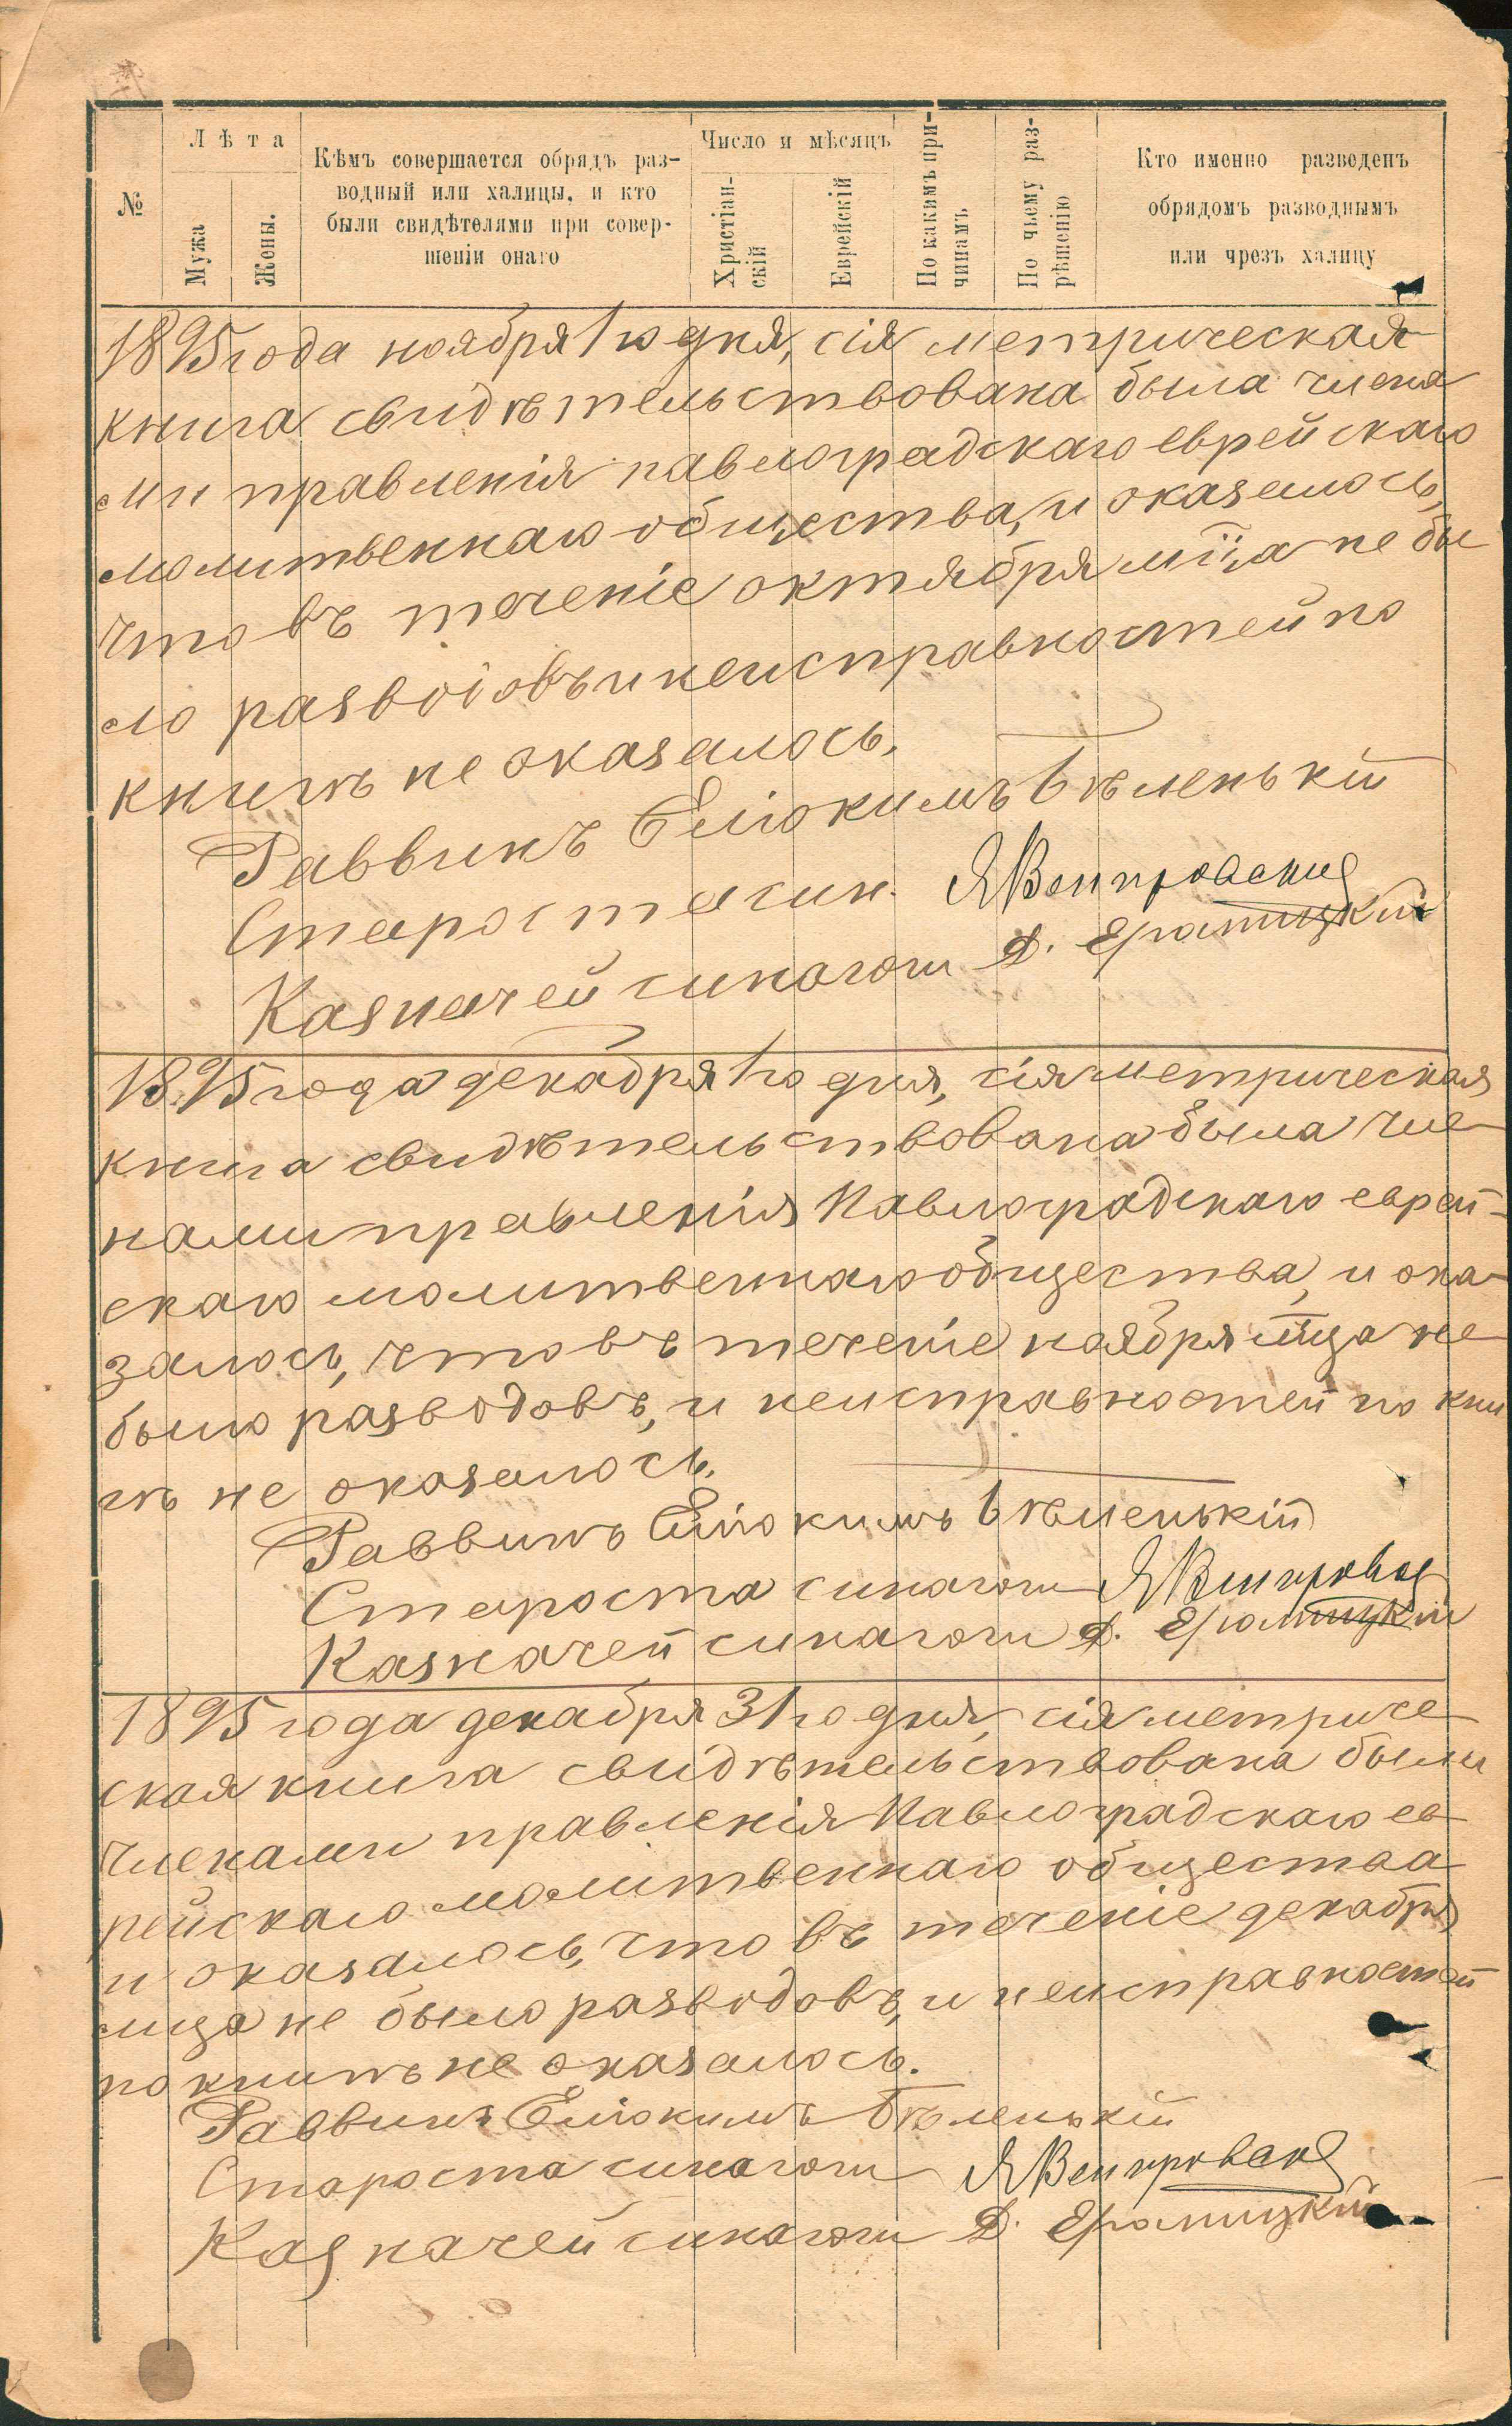 №
Лѣта
Мужа
Жены.
Кѣмъ совершается обрядъ раз-
водный или халицы, и кто
были свидѣтелями при совер-
шеніи онаго
Число и мѣсяцъ
Христіан-
скій
Еврейскій
По какимъ при-
чинамъ
По чьему раз-
рѣшенію
Кто именно разведенъ
обрядомъ разводнымъ
или чрезъ халицу
1895 года ноября 1го дня, сія метрическая
книга свидѣтельствована была члена
ми правленія павлоградскаго еврейскаго
молитвеннаго общества, и оказалось,
что въ теченіе октября мца не бы
ло разводовъ и неисправностей по
книгѣ не оказалось.
Раввинъ Еліокимъ Бѣленькій
Староста син.
Казначей синагоги
1895 года декабря 1го дня, сія метрическая
книга свидѣтельствована была чле-
нами правленія Павлоградскаго еврей-
скаго молитвеннаго общества, и ока-
залось, что въ теченіе ноября мца не
было разводовъ, и неисправностей по кни
гѣ не оказалось.
Раввинъ Еліокимъ Бѣленькій
Староста синагоги
Казначей синагоги
1895 года декабря 31го дня, сія метриче-
ская книга свидѣтельствована была
членами правленія Павлоградскаго ев-
рейскаго молитвеннаго общества
и оказалось, что въ теченіе декабря
мца не было разводовъ, и неисправностей
по книгѣ не оказалось.
Раввинъ Еліокимъ Бѣленькій
Староста синагоги
Казначей синагоги